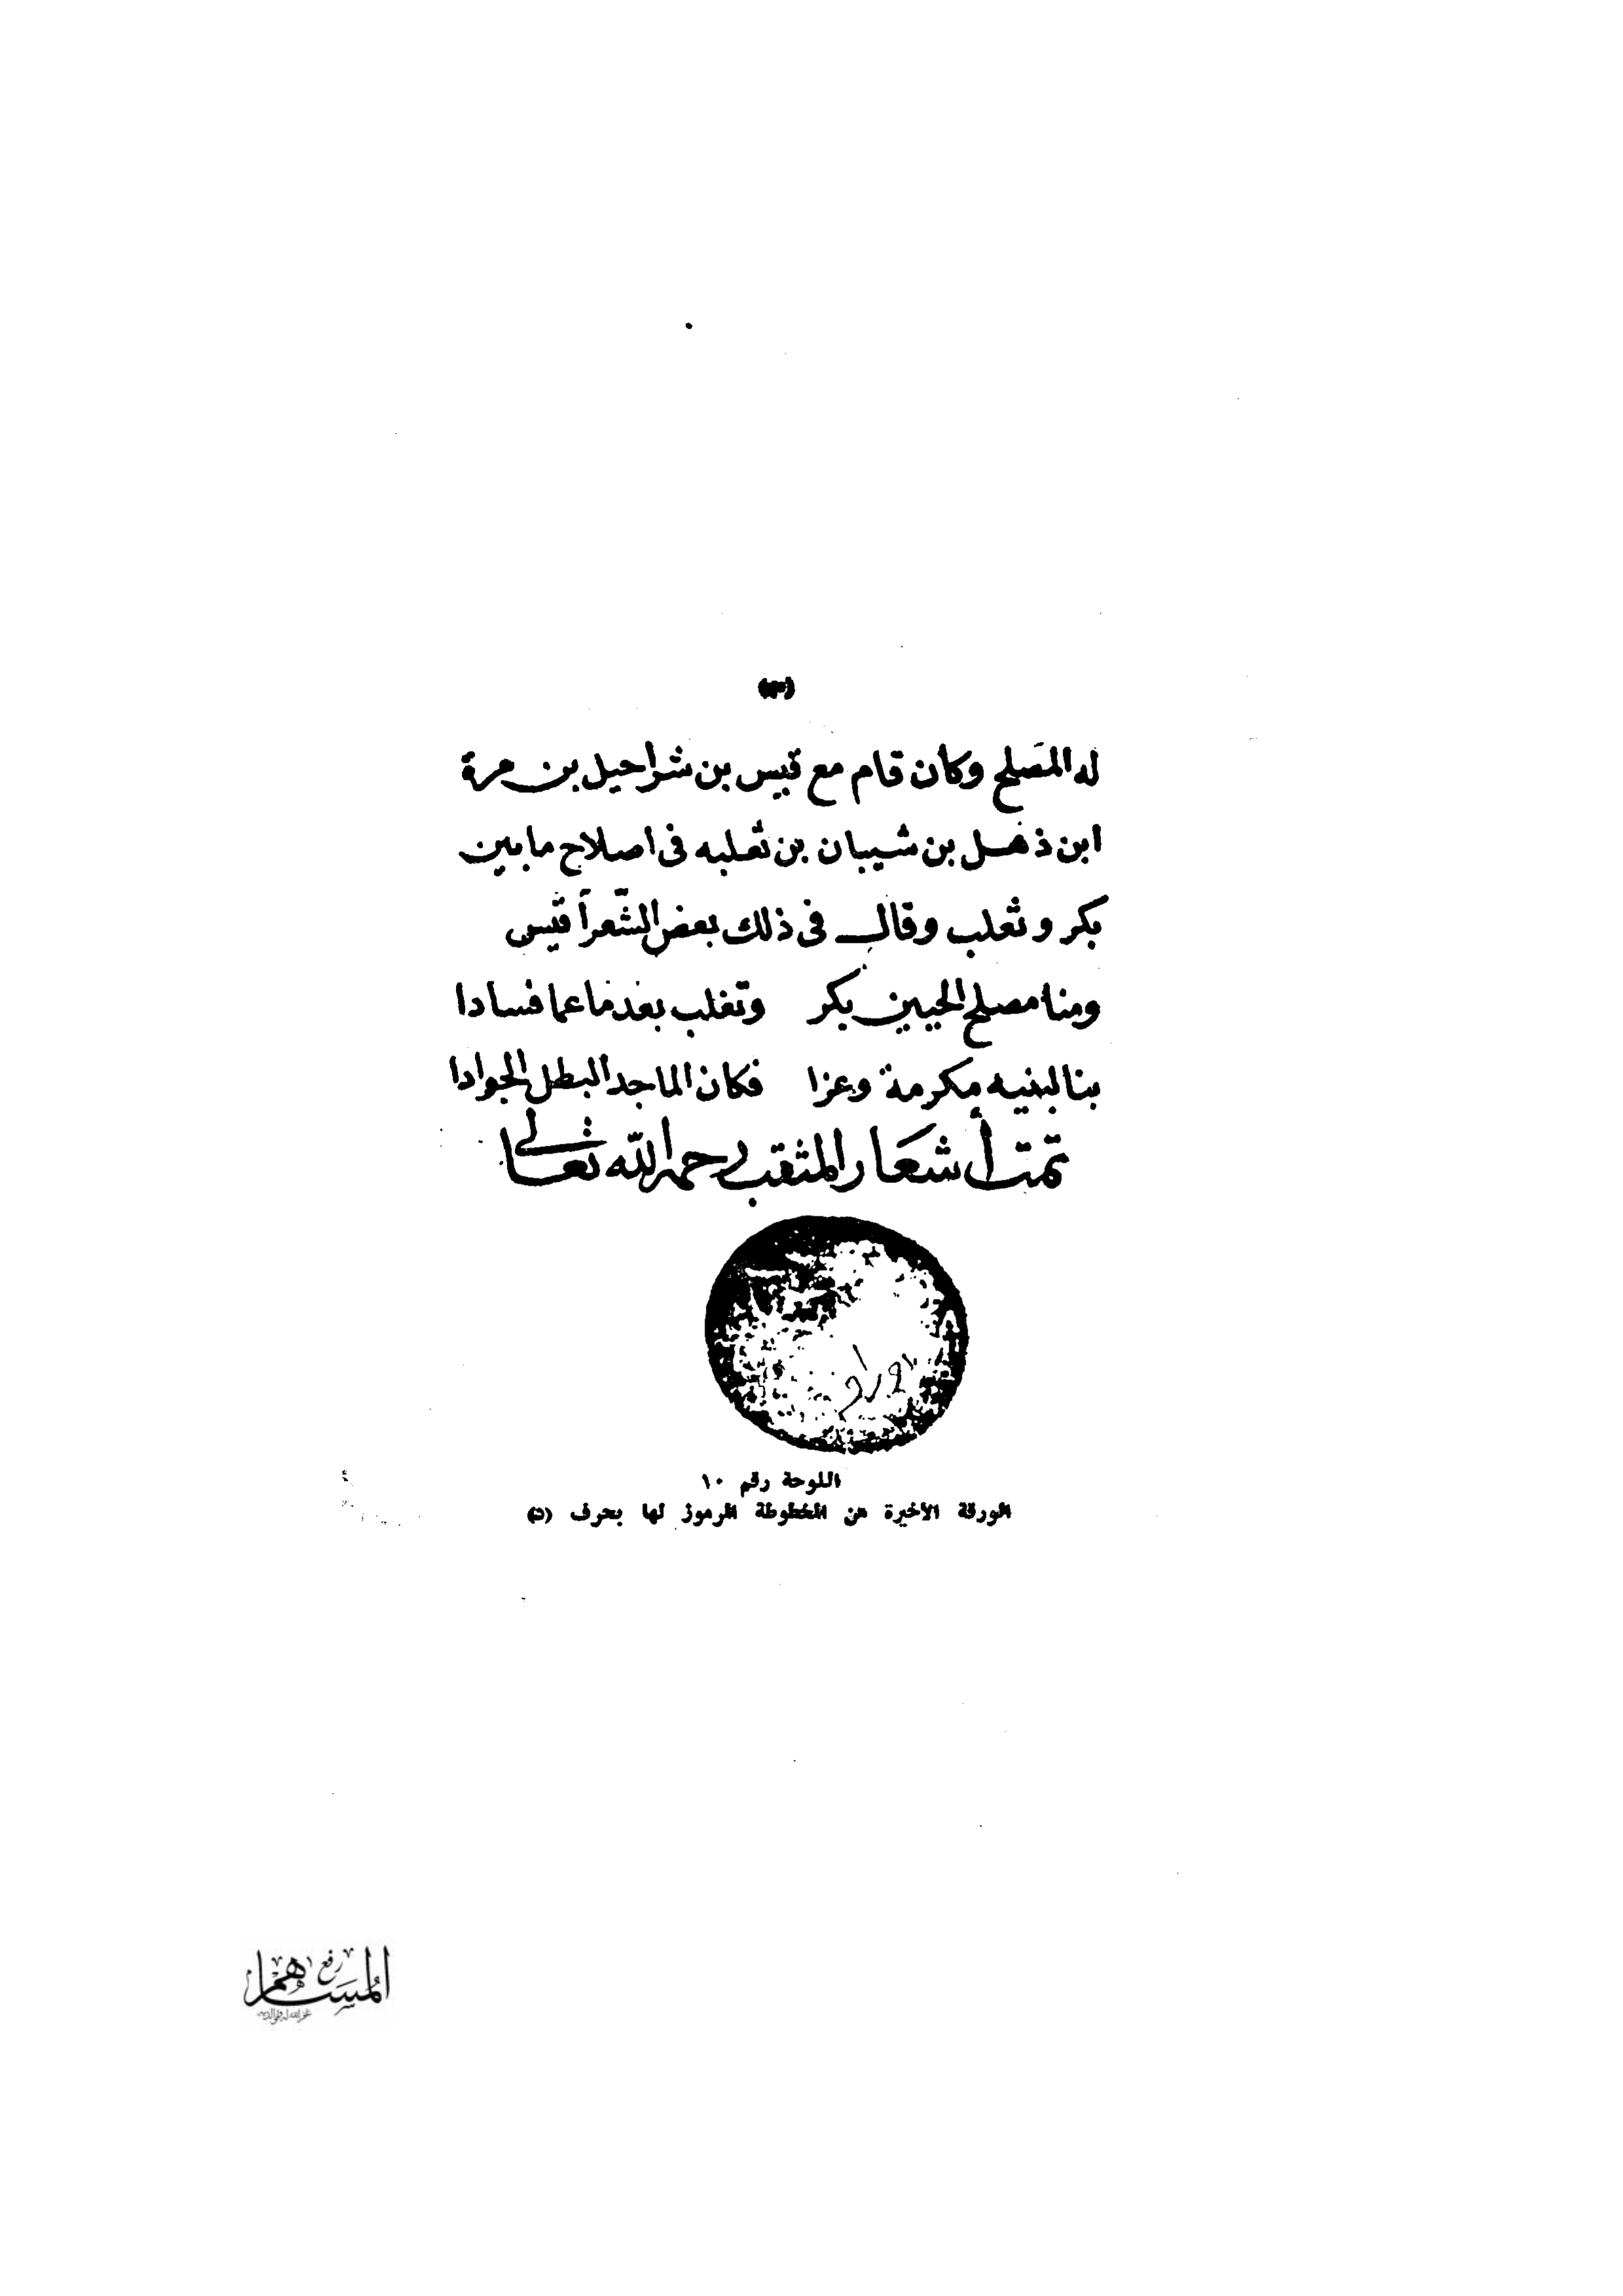 له المصلح وكان قام مع قيس بن شراحيل بن مرة
ابن ذهل بن شيبان بن ثعلبه فى اصلاح مابين
بكر وثعلب وقال فى ذلك بعض الشّعرآ قيس
ومنا مصلح الحيين بكر وتغلب بعد ما عما فسادا
بنا لبنيه مكرمة وعزا فكان الماجد البطل الجوادا
تمت أشعار المثقب رحمه الله تعالى
اللوحة رقم ١٠
الورقة الأخيرة من المخطوطة المرموز لها بحرف
رفع المساهم